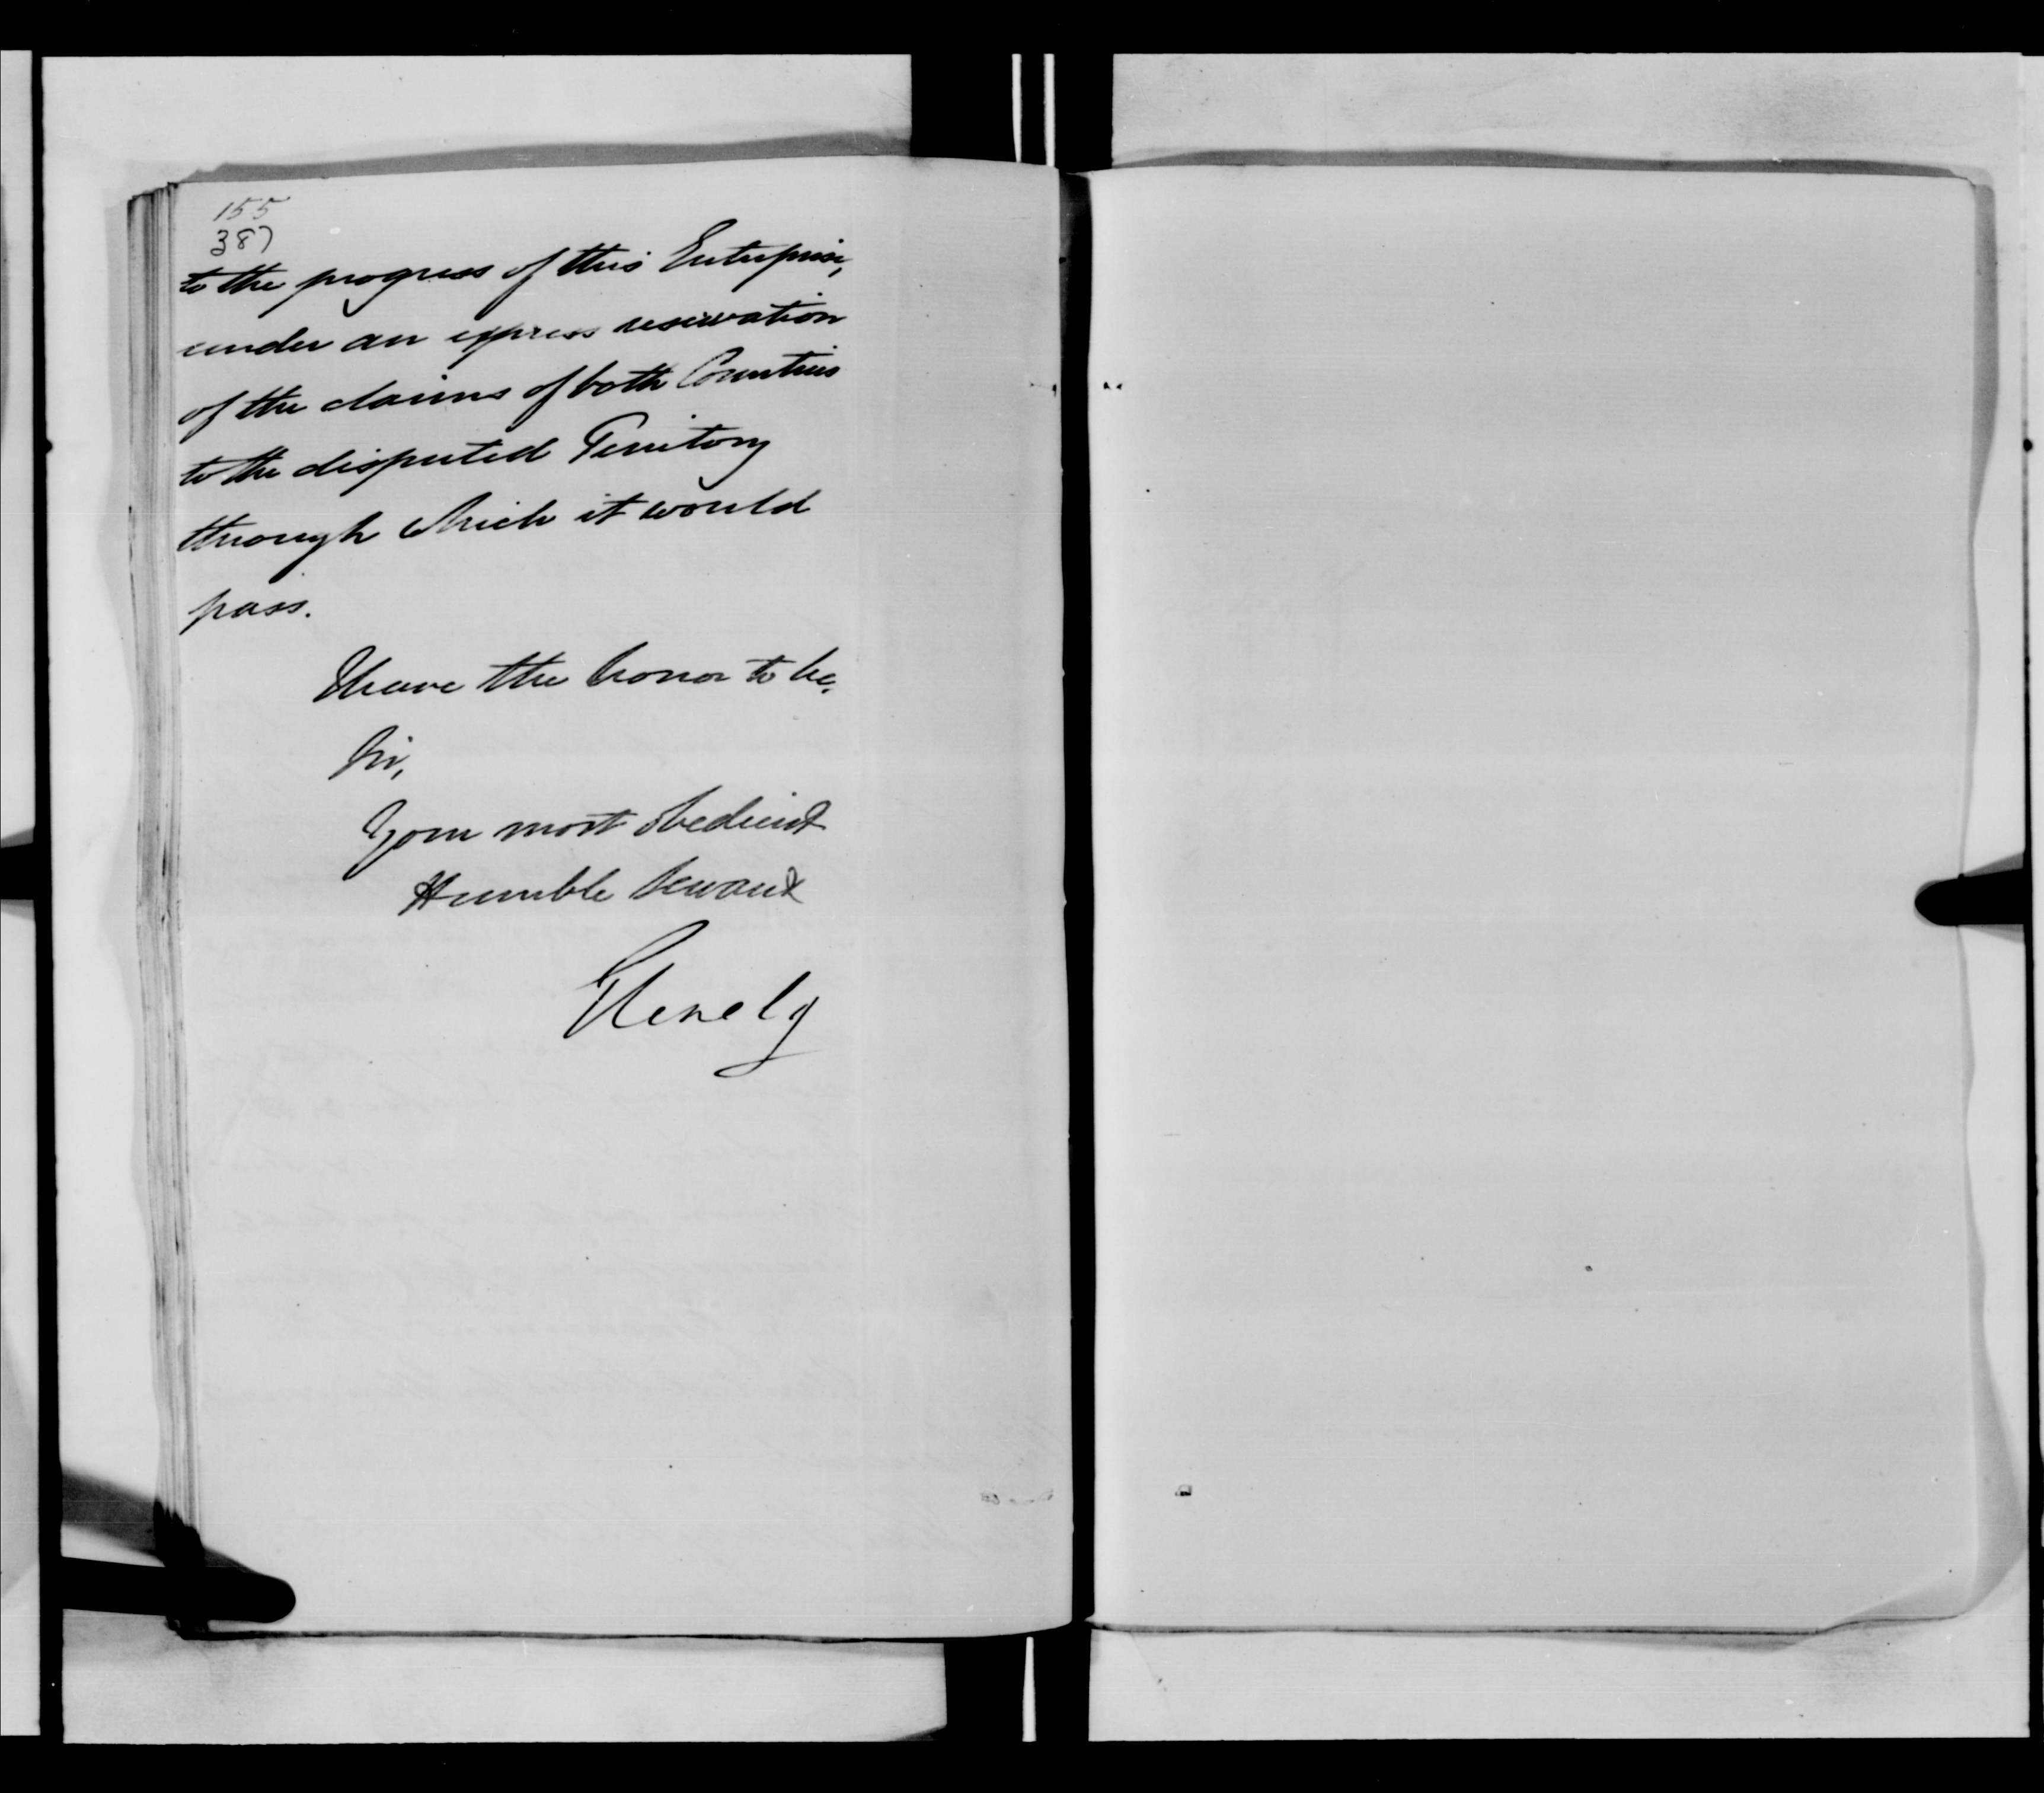 155
387
to the progress of this Enterprise,
under an express reservation
of the claims of both Countries
to the disputed Territory
through which it would
pass.
I have the honor to be,
Sir,
Your most obedient
Humble Servant
Glenelg